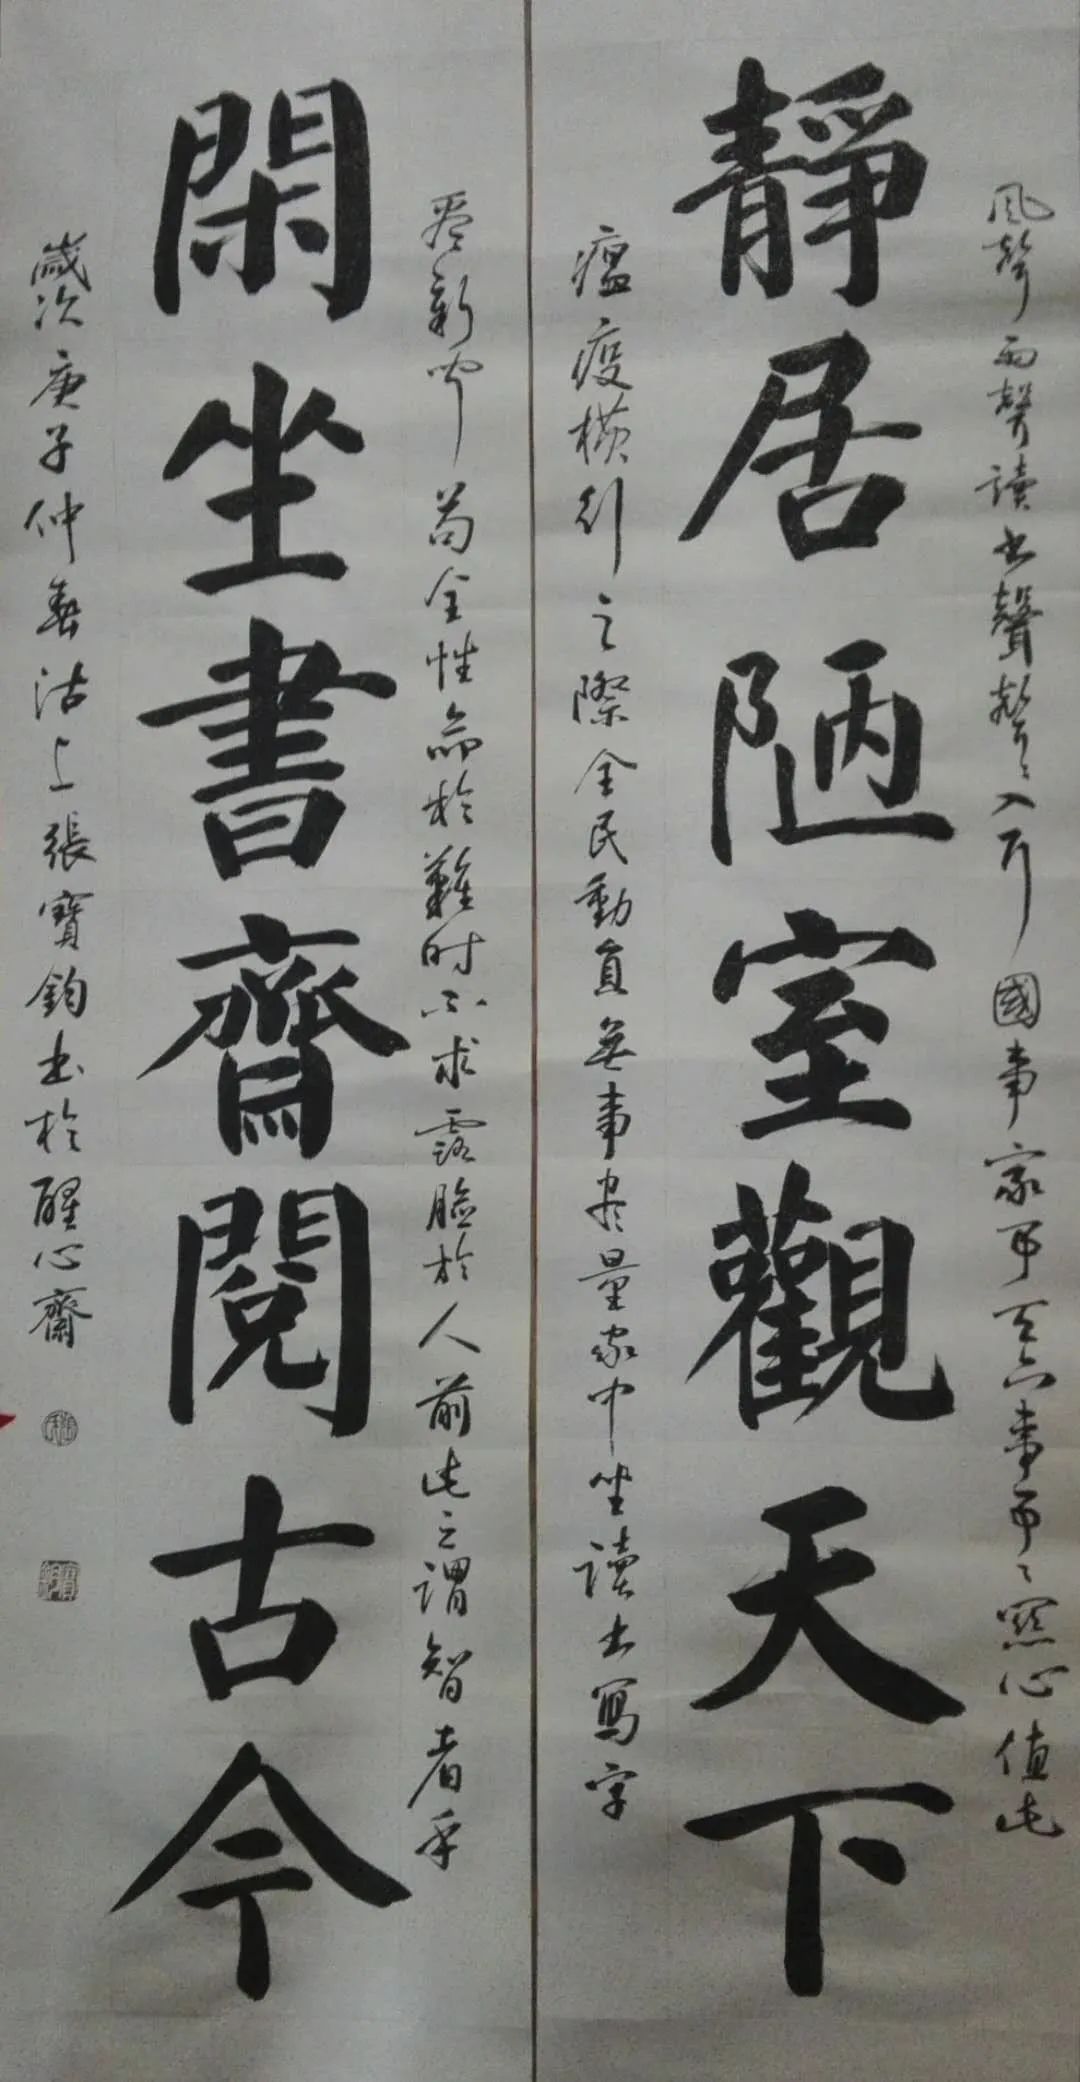 風聲雨聲讀书聲聲々入耳國事家事天下事事々關心值此
靜居陋室觀天下
瘟疫橫行之際全民動員無事尽量家中坐讀书寫字
看新聞苟全性命於難时不求露臉於人前此之謂智者乎
閑坐書齋閱古今
歲次庚子仲春沽上張寶鈞书於醒心齋